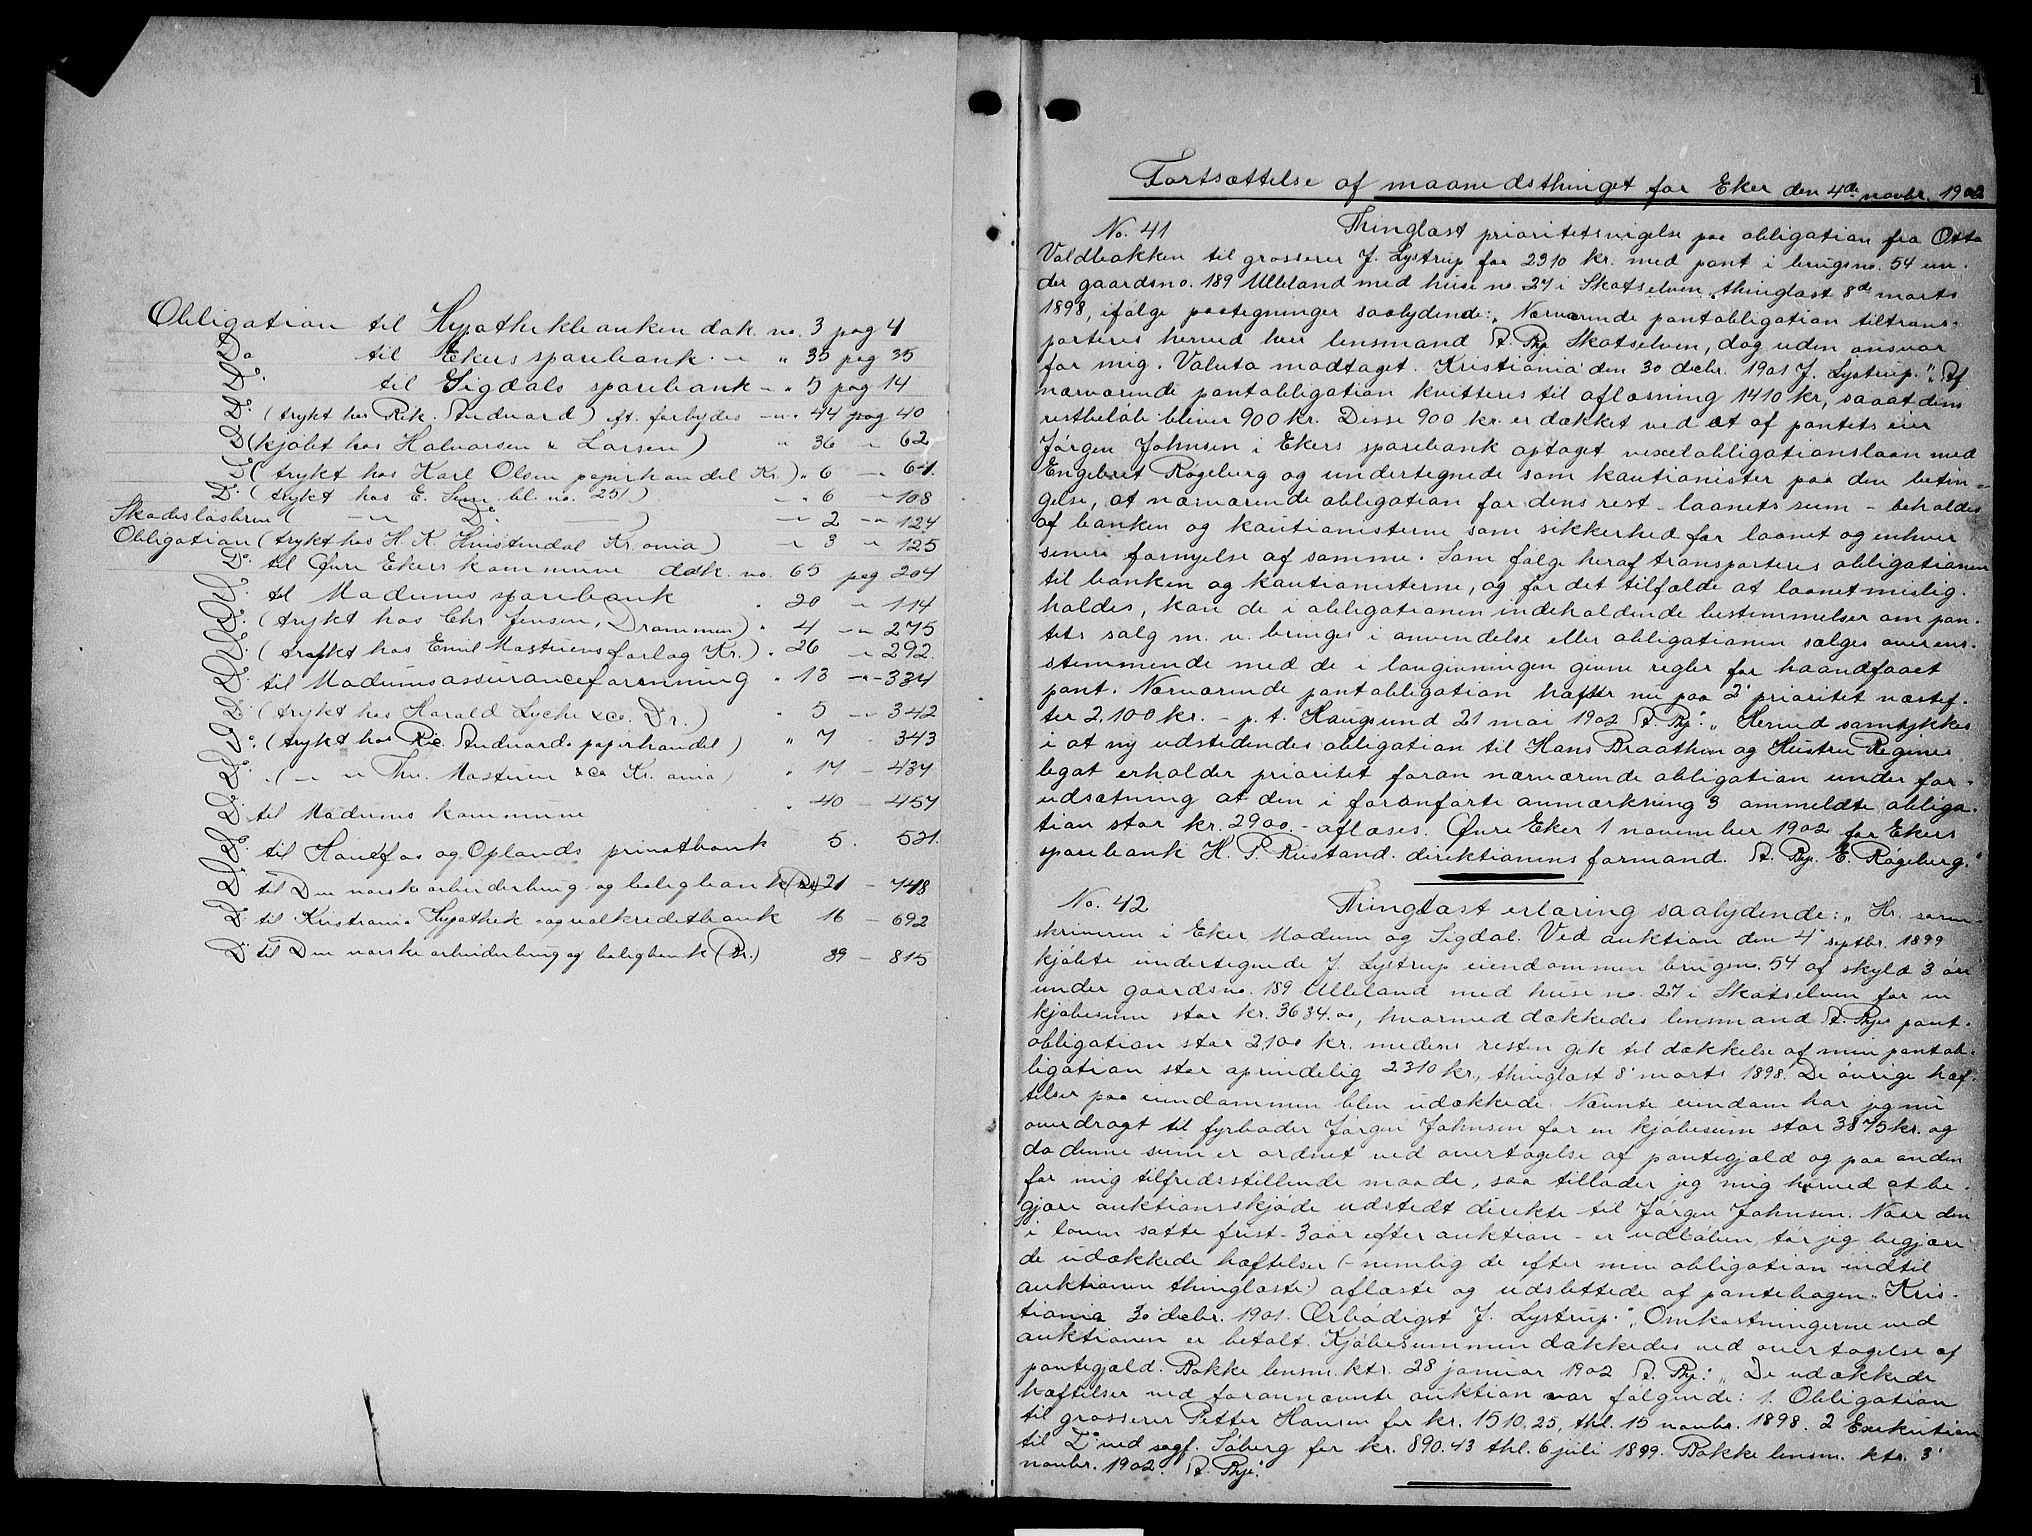 Obligation til Hypothekbanken dok. no. 3 pag 4
Do til Ekers sparebank - " 35 pag 35
Do til Sigdals sparebank - " 5 pag 14
Do (trykt hos Rik. Andvord) eft. forbydes - " 44 pag 40
Do (kjøbt hos Halvorsen & Larsen) " 36 - 62
Do (trykt hos Karl Olsen papirhandel Kr.) " 6 - 64
Do (trykt hos E. Sem bl. no. 251) - " 6 - 108
Skadesløsbrev ( - " - Do - ) - " 2 - " 124
Obligation (trykt hos H. K. Kristiania) - " 3 " 125
Do til Øvre Ekers kommune dok. no. 65 pag 204
Do til Modums sparebank " 20 - " 114
Do (trykt hos Chr. Jensen, Drammen) " 4 - " 275
Do (trykt hos Emil Mosturens forlag Kr.) " 26 - " 292
Do til Modums assuranceforenning " 13 - " 334
Do (trykt hos Harald Lyche & co. Dr.) " 5 - " 342
Do (trykt hos Ric. Andvords papirhandel) " 7 - 343
Do ( - " - Mosturen & co Kr.ania) " 17 - 437
Do til Modums kommune " 40 - 457
Do til Hønefos og Oplands privatbank 5. 521
Do til Den norske arbeiderbrug og boligbank 21 - 748
Do til Kristiania Hypothek- og realkreditbank 16 - 692
Do til Den norske arbeiderbrug og boligbank (Dr.) 39 - 815
1
Fortsættelse af maanedsthinget for Eker den 4de novbr. 1902
No. 41 Thinglæst prioritetsvigelse paa obligation fra Otto
Voldbakken til grosserer J. Lystrup for 2310 kr. med pant i brugsno. 54 un-
der gaardsno. 189 Ulleland med huse no. 27 i Skotselven, thinglæst 8de marts
1898, ifølge paategninger saalydende: "Nærværende pantobligation tiltrans-
porteres herved herr lensmand A. Rye Skotselven, dog uden ansvar
for mig. Valuta modtaget. Kristiania den 30 decbr. 1901 J. Lystrup." "Af
nærværende pantobligation kvitteres til aflæsning 1410 kr, saaat dens
restbeløb bliver 900 kr. Disse 900 kr. er dækket ved at af pantets eier
Jørgen Johnsen i Ekers sparebank optaget vexelobligationslaan med
Engebret Røgeberg og undertegnede som kautionister paa den betin-
gelse, at nærværende obligation for dens rest - laanets sum - beholdes
af banken og kautionisterne som sikkerhed for laanet og enhver
senere fornyelse af samme. Som følge heraf transporteres obligationen
til banken og kautionisterne, og for det tilfælde at laanet mislig-
holdes, kan de i obligationen indeholdende bestemmelser om pan-
tets salg m. v. bringes i anvendelse eller obligationen sælges overens-
stemmende med de i lovgivningen givne regler for haandfaaet
pant. Nærværende pantobligation hafter nu paa 2' prioritet næstef-
ter 2,100 kr. - p. t. Haugsund 21 mai 1902 A. Rye." "Herved samtykkes
i at ny udstedendes obligation til Hans Braathen og Hustru Regines
legat erholder prioritet foran nærværende obligation under for-
udsætning at den i foranførte anmærkning 3 ommeldte obliga-
tion stor kr. 2900 - aflæses. Øvre Eker 1 november 1902 for Ekers
sparebank H. P. Rustand direktionens formand. A. Rye. E. Røgeberg."
No. 42 Thinglæst erlæring saalydende: "Hr. soren-
skriveren i Eker Modum og Sigdal. Ved auktion den 4' septbr. 1899
kjøbte undertegnede J. Lystrup eiendommen brugsno. 54 af skyld 3 øre
under gaardsno. 189 Ulleland med huse no. 27 i Skotselven for en
kjøbesum stor kr. 3684.00, hvormed dækkedes lensmand A. Ryes pant-
obligation stor 2,100 kr. medens resten gik til dækkelse af min pantob-
ligation stor oprindelig 2310 kr., thinglæst 8' marts 1898. De øvrige hæf-
telser paa eiendommen blev udækkede. Nævnte eiendom har jeg nu
overdraget til fyrbøder Jørgen Johnsen for en kjøbesum stor 3875 kr. og
da denne sum er ordnet ved overtagelse af pantegjæld og paa anden
for mig tilfredsstillende maade, saa tillader jeg mig herved at be-
gjære auktionsskjøde udstedt direkte til Jørgen Johnsen. Naar den
i loven satte frist - 3 aar efter auktion - er udløben, tør jeg begjære
de udækkede hæftelser (- nemlig de efter min obligation indtil
auktionen thinglæste) aflæste og udslettede af pantebogen. Kris-
tiania 30 decbr. 1901. Ærbødigst J. Lystrup." "Omkostningerne ved
auktionen er betalt. Kjøbesummen dækkedes ved overtagelse af
pantegjæld. Bakke lensm. ktr. 28 januar 1902 A. Rye." "De udækkede
hæftelser ved forannævnte auktion var følgende: 1. Obligation
til grosserer Petter Hansen for kr. 1510.25, thl. 15 novbr. 1898. 2 Exekution
til Do ved sagf. Søberg for kr. 890.43 thl. 6 juli 1899. Bakke lensm. ktr. 3'
novbr. 1902. A. Rye."